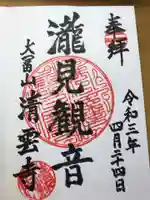 奉拝
令和三年
四月二十四日
瀧見観音
大富山
清雲寺